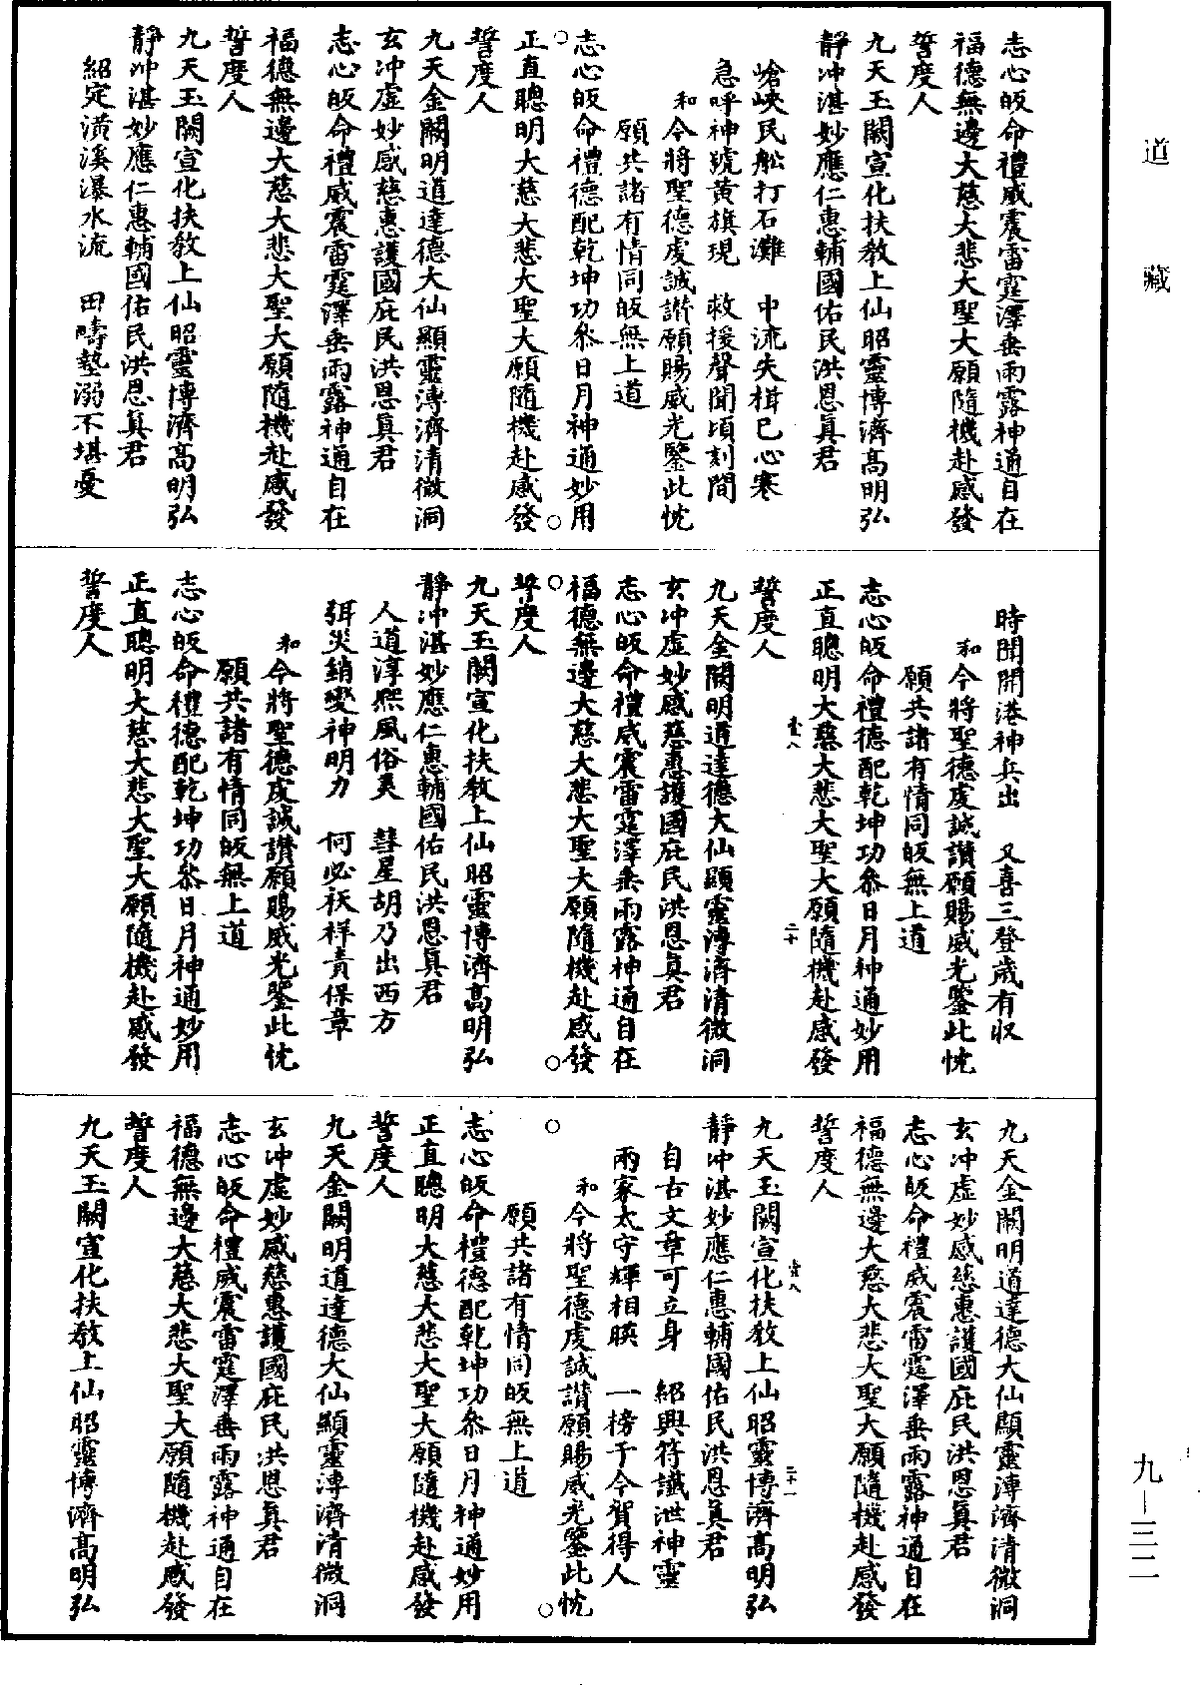 道藏
志心皈命禮威震雷霆澤垂雨露神通自在
福德無邊大慈大悲大聖大願隨機赴感發
誓度人
九天玉闕宣化扶教上仙昭靈博濟高明弘
靜沖湛妙應仁惠輔國佑民洪恩真君
嶮峽民舩打石灘　中流失楫已心寒
急呼神號黃旗現　救援聲聞頃刻間
和今將聖德虔誠讚願賜威光鑒此忱
願共諸有情同皈無上道
志心皈命禮德配乾坤功叅日月神通妙用
正直聰明大慈大悲大聖大願隨機赴感發
誓度人
九天金闕明道達德大仙顯靈溥濟清微洞
玄沖虛妙感慈惠護國庇民洪恩真君
志心皈命禮威震雷霆澤垂雨露神通自在
福德無邊大慈大悲大聖大願隨機赴感發
誓度人
九天玉闕宣化扶教上仙昭靈博濟高明弘
靜沖湛妙應仁惠輔國佑民洪恩真君
紹定潢溪瀑水流　田疇墊溺不堪憂
時聞開港神兵出　又喜三登歲有収
和今將聖德虔誠讚願賜威光鑒此忱
願共諸有情同皈無上道
志心皈命禮德配乾坤功叅日月神通妙用
正直聰明大慈大悲大聖大願隨機赴感發
壹八　二十
誓度人
九天金闕明道達德大仙顯靈溥濟清微洞
玄沖虛妙感慈惠護國庇民洪恩真君
志心皈命禮威震雷霆澤垂雨露神通自在
福德無邊大慈大悲大聖大願隨機赴感發
誓度人
九天玉闕宣化扶教上仙昭靈博濟高明弘
靜沖湛妙應仁惠輔國佑民洪恩真君
人道淳熈風俗美　彗星胡乃出西方
弭災銷變神明力　何必祅祥責保章
和今將聖德虔誠讚願賜威光鑒此忱
願共諸有情同皈無上道
志心皈命禮德配乾坤功叅日月神通妙用
正直聰明大慈大悲大聖大願隨機赴感發
誓度人
九天金闕明道達德大仙顯靈溥濟清微洞
玄沖虛妙感慈惠護國庇民洪恩真君
志心皈命禮威震雷霆澤垂雨露神通自在
福德無邊大慈大悲大聖大願隨機赴感發
誓度人
壹八　二十一
九天玉闕宣化扶教上仙昭靈博濟高明弘
靜沖湛妙應仁惠輔國佑民洪恩真君
自古文章可立身　紹興符讖泄神靈
兩家太守輝相暎　一榜于今賀得人
和今將聖德虔誠讚願賜威光鑒此忱
願共諸有情同皈無上道
志心皈命禮德配乾坤功叅日月神通妙用
正直聰明大慈大悲大聖大願隨機赴感發
誓度人
九天金闕明道達德大仙顯靈溥濟清微洞
玄沖虛妙感慈惠護國庇民洪恩真君
志心皈命禮威震雷霆澤垂雨露神通自在
福德無邊大慈大悲大聖大願隨機赴感發
誓度人
九天玉闕宣化扶教上仙昭靈博濟高明弘
九—三二